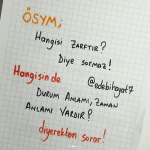 ÖSYM;
Hangisi ZARFTIR?
Diye sormaz!
@edebihayat7
Hangisinde
DURUM ANLAMI, ZAMAN
ANLAMI VARDIR?
diyerekten sorar!